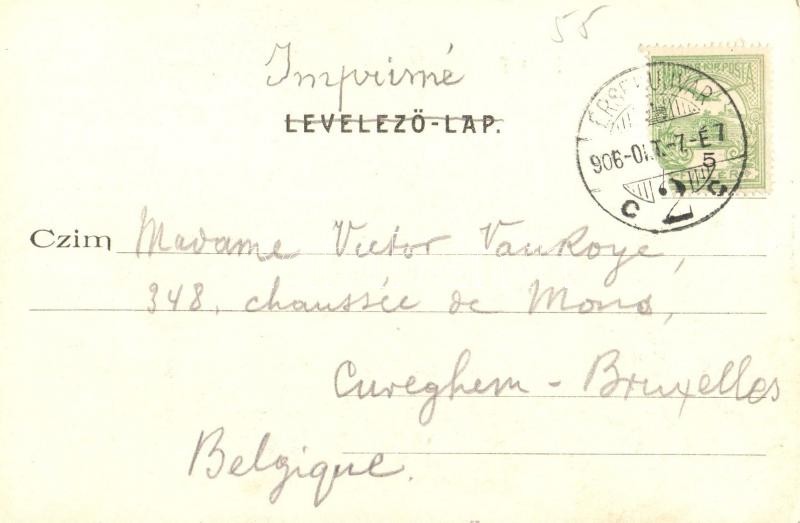 55
Imprimé
LEVELEZŐ-LAP.
ÉRSEKUJVÁR
906-OKT.-7.-É7
C 2 C
5
Czim Madame Victor Vankoye,
348, chaussée de Mons,
Cureghem - Bruxelles
Belgique.